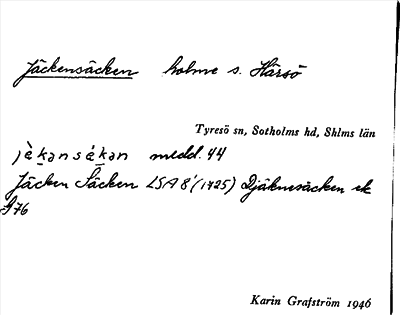 Jäckensäcken holme s. Hårsö
Tyresö sn, Sotholms hd, Shlms län
jèḵənsáḵən medd. 44
Jäcken Säcken LSA 8¹ (1725) Djäknesäcken ek
976
Karin Grafström 1946